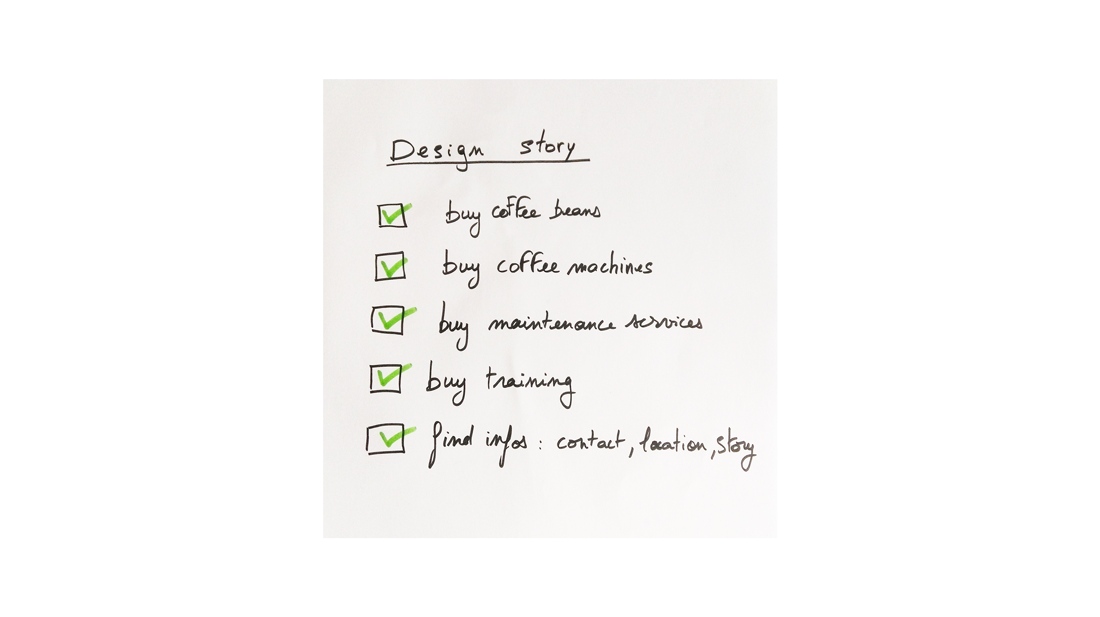 Design story
buy coffee beans
buy coffee machines
buy maintenance services
buy training
find infos : contact, location, story